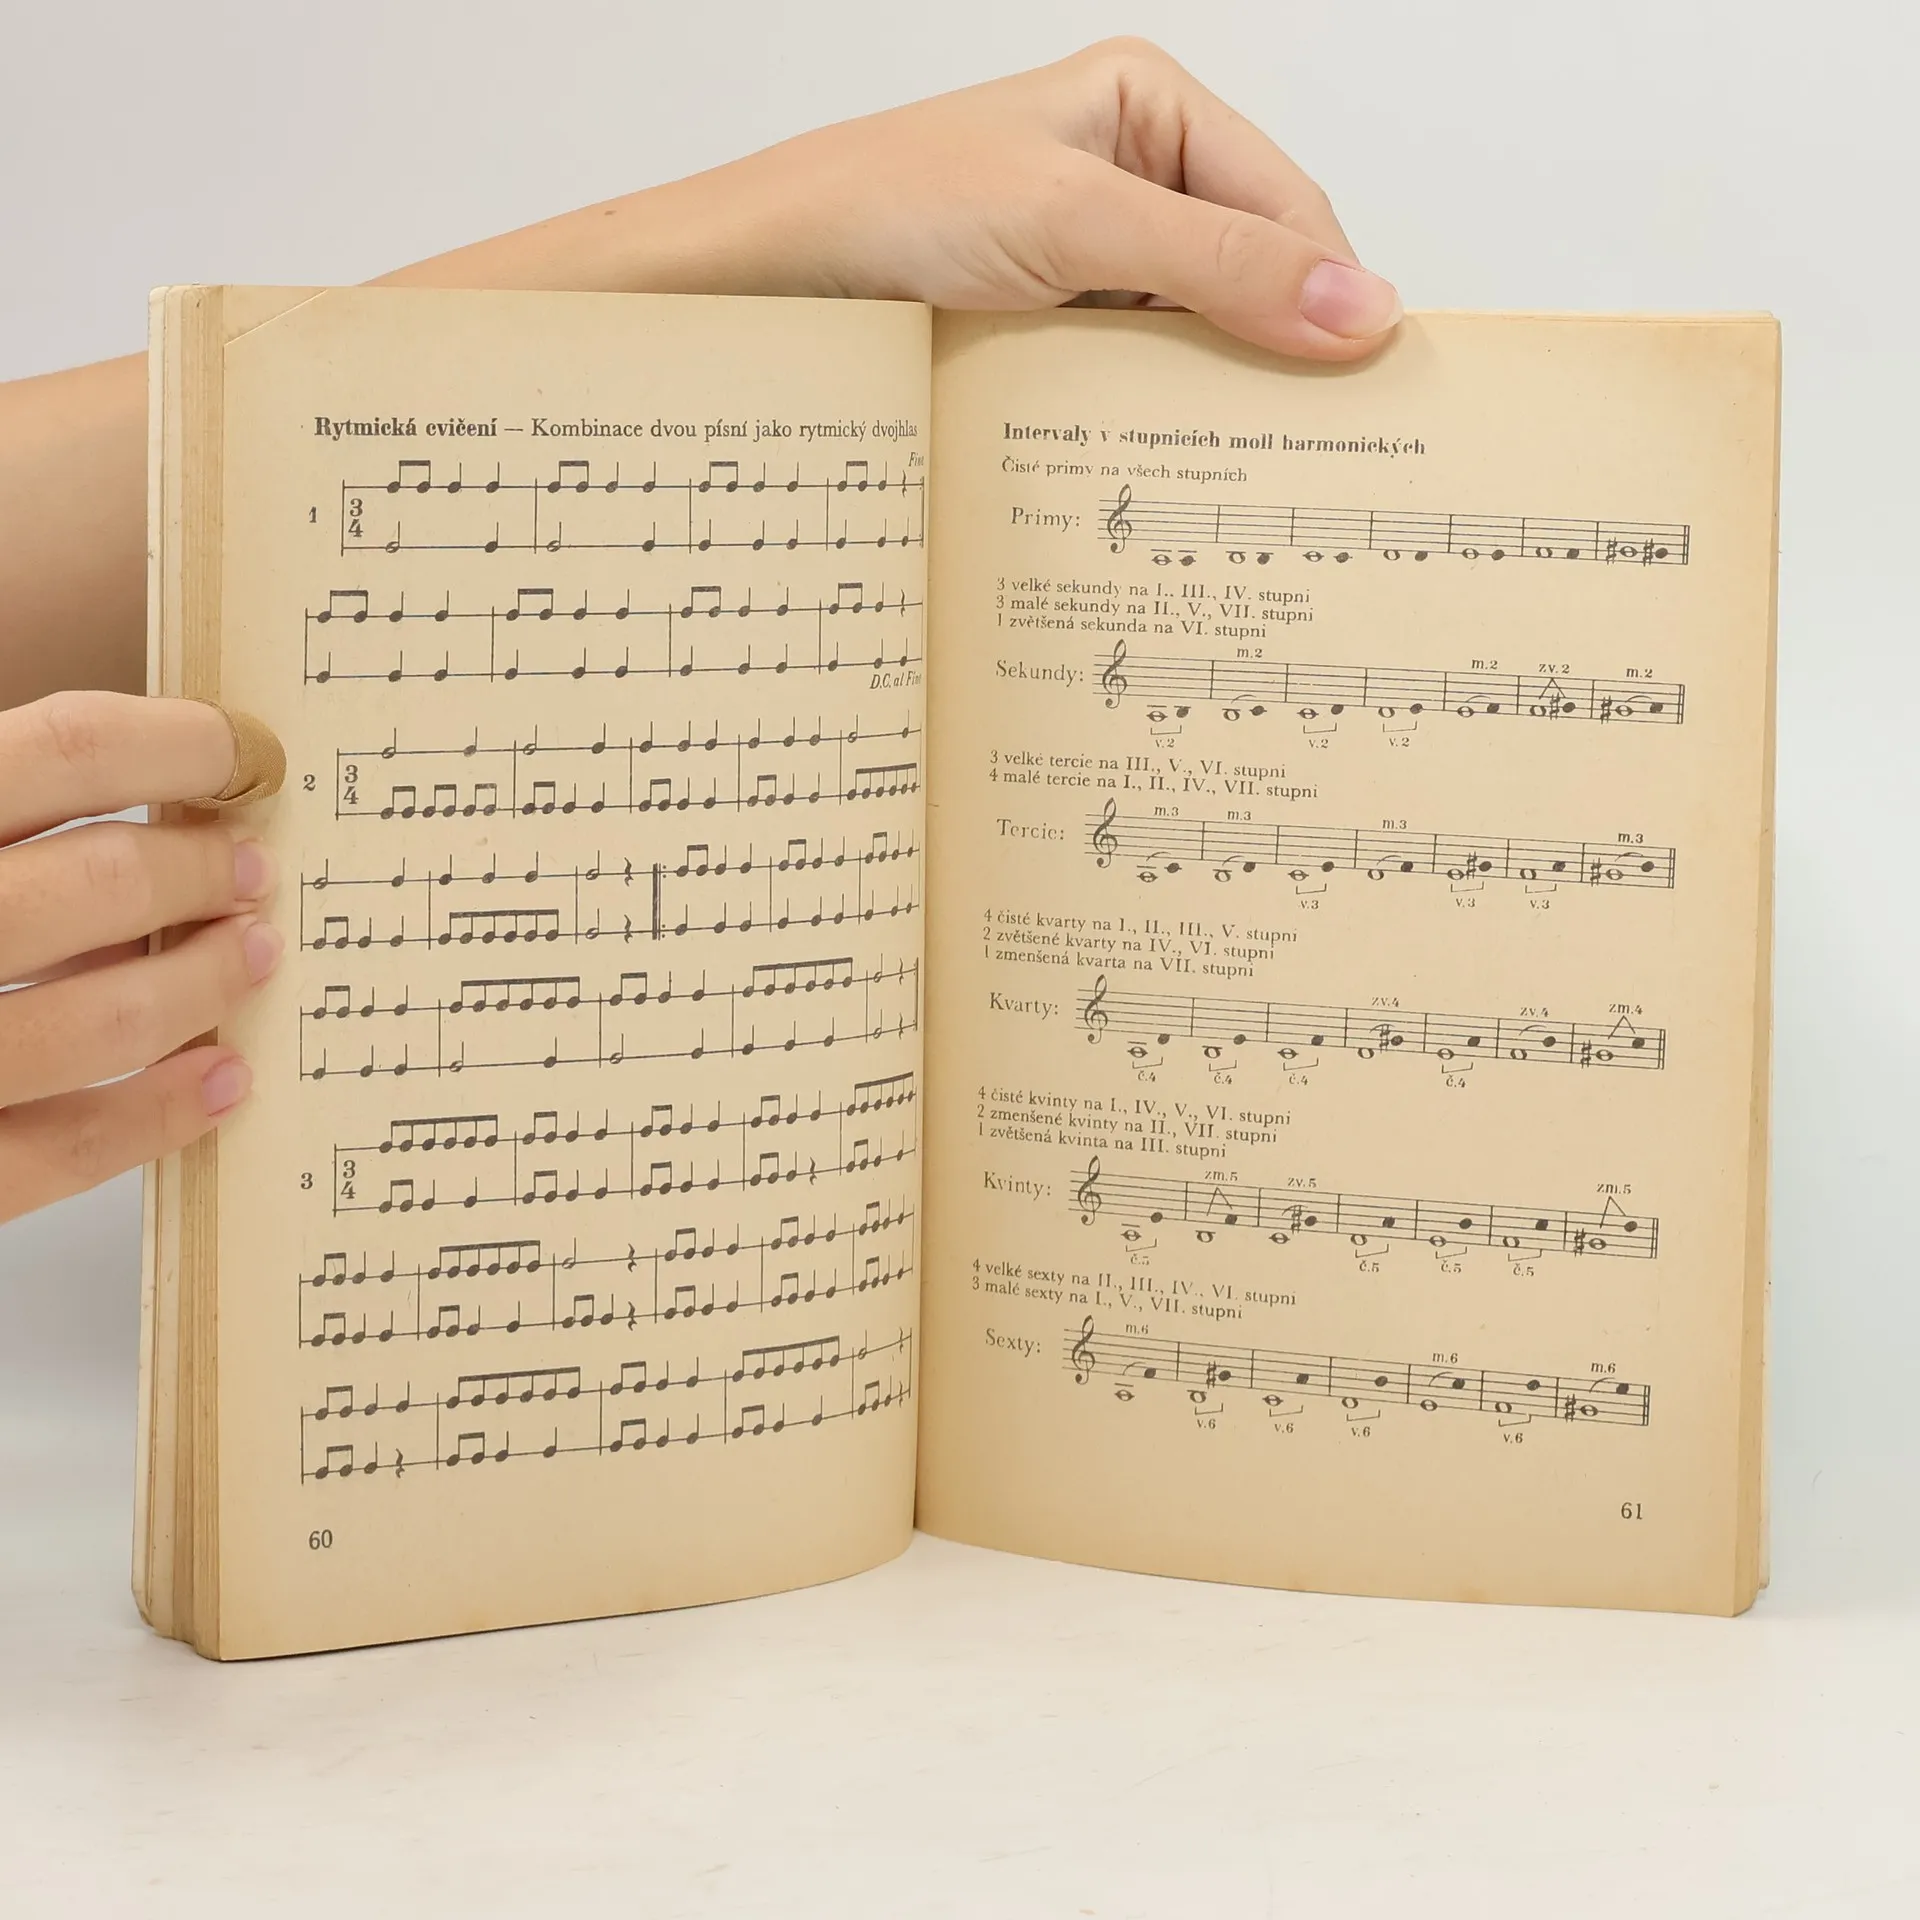 Rytmická cvičení — Kombinace dvou písní jako rytmický dvojhlas
1
3
4
D.C. al Fine
2
3
4
3
3
4
60
Intervaly v stupnicích moll harmonických
Čisté primy na všech stupních
Primy:
3 velké sekundy na I., III., IV. stupni
3 malé sekundy na II., V., VII. stupni
1 zvětšená sekunda na VI. stupni
m.2 m.2 zv.2 m.2
Sekundy:
v.2 v.2 v.2
3 velké tercie na III., V., VI. stupni
4 malé tercie na I., II., IV., VII. stupni
m.3 m.3 m.3 m.3
Tercie:
v.3 v.3 v.3
4 čisté kvarty na I., II., III., V. stupni
2 zvětšené kvarty na IV., VI. stupni
1 zmenšená kvarta na VII. stupni
zv.4 zv.4 zm.4
Kvarty:
č.4 č.4 č.4 č.4
4 čisté kvinty na I., IV., V., VI. stupni
2 zmenšené kvinty na II., VII. stupni
1 zvětšená kvinta na III. stupni
zm.5 zv.5 zm.5
Kvinty:
č.5 č.5 č.5 č.5
4 velké sexty na II., III., IV., VI. stupni
3 malé sexty na I., V., VII. stupni
m.6 m.6 m.6
Sexty:
v.6 v.6 v.6 v.6
61